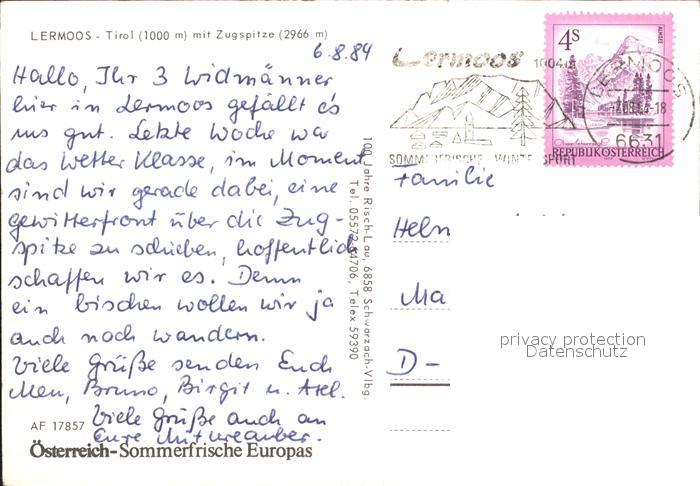 LERMOOS - Tirol (1000 m) mit Zugspitze (2966 m)
6.8.84
Hallo, Ihr 3 Widmänner
hier in Lermoos gefällt es
uns gut. Letzte Woche war
das Wetter Klasse, im Moment
sind wir gerade dabei, eine
gewitterfront über die Zug-
spitze zu schieben, hoffentlich
schaffen wir es. Denn
ein bischen wollen wir ja
auch noch wandern.
Viele Grüße senden Euch
Bruno, Birgit u. Axel.
Viele Grüße auch an
Eure Miturlauber.
AF 17857
Österreich-Sommerfrische Europas
100 Jahre Risch-Lau, 6858 Schwarzach-Vlbg.
Tel. 05572-54706, Telex 59390
Lermoos 1004m
SOMMERFRISCHE - WINTERSPORT
4S
ALMSEE
REPUBLIK ÖSTERREICH
LERMOOS
6631
Familie
Heln
Ma
D-
privacy protection
Datenschutz